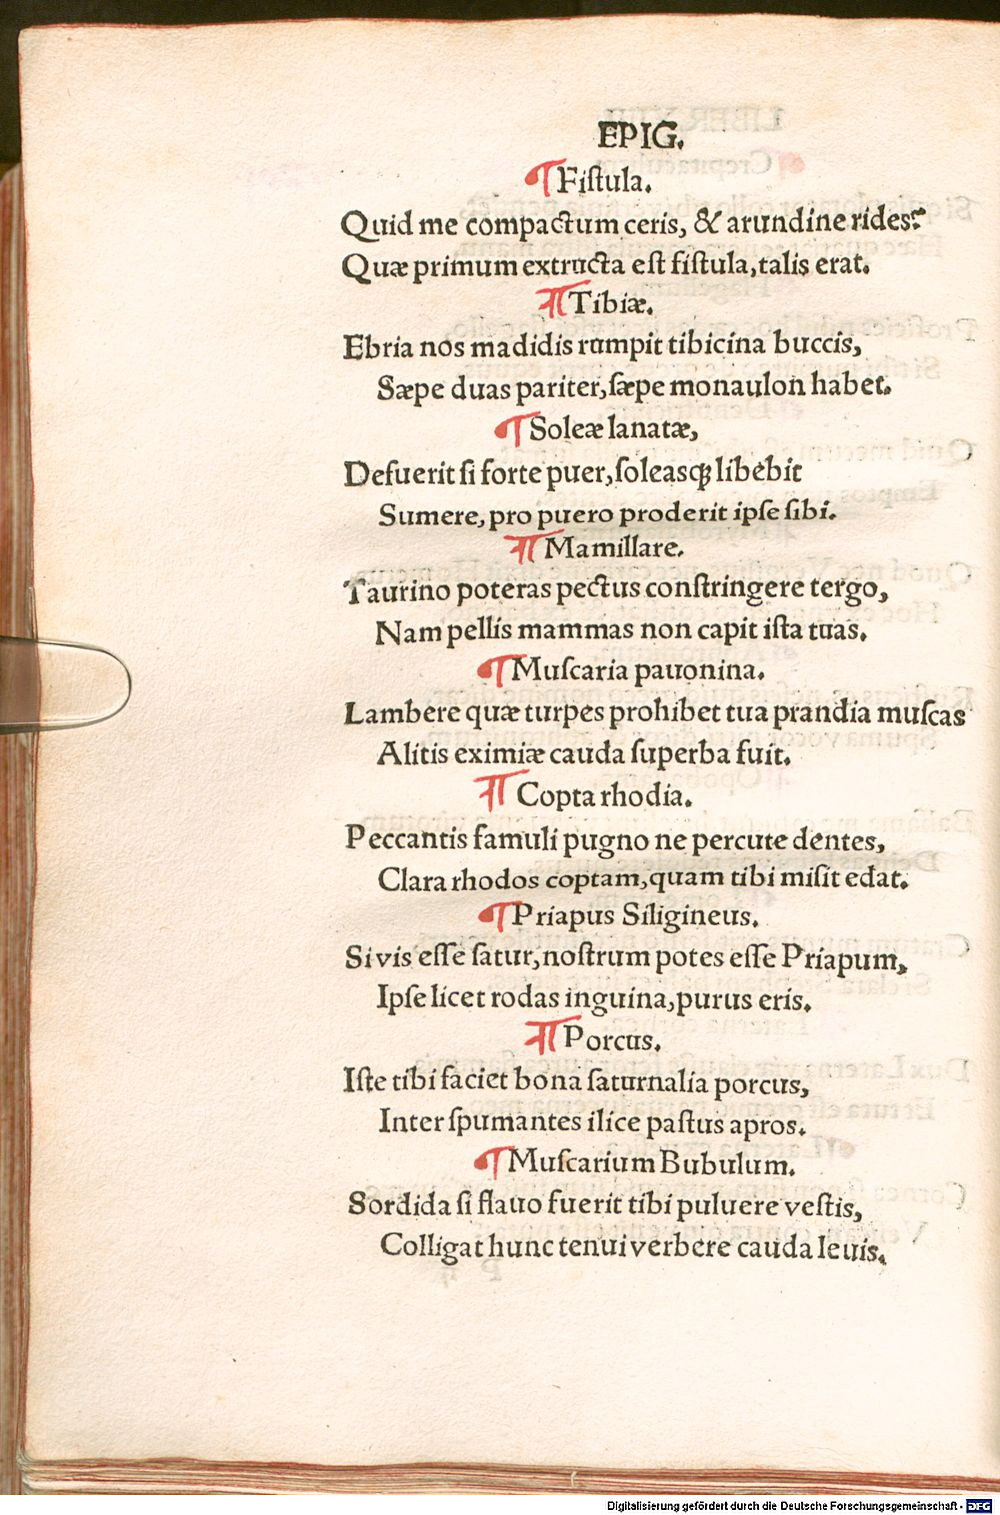 EPIG.
¶ Fiſtula.
Quid me compactum ceris, & arundine rides?
Quæ primum extructa eſt fiſtula, talis erat.
¶ Tibiæ.
Ebria nos madidis rumpit tibicina buccis,
Sæpe duas pariter, ſæpe monaulon habet.
¶ Soleæ lanatæ,
Defuerit ſi forte puer, ſoleasqꝫ libebit
Sumere, pro puero proderit ipſe ſibi.
¶ Mamillare.
Taurino poteras pectus conſtringere tergo,
Nam pellis mammas non capit iſta tuas.
¶ Muſcaria pauonina.
Lambere quæ turpes prohibet tua prandia muſcas
Alitis eximiæ cauda ſuperba fuit.
¶ Copta rhodia.
Peccantis famuli pugno ne percute dentes,
Clara rhodos coptam, quam tibi miſit edat.
¶ Priapus Siligineus.
Si vis eſſe ſatur, noſtrum potes eſſe Priapum,
Ipſe licet rodas inguina, purus eris.
¶ Porcus.
Iſte tibi faciet bona ſaturnalia porcus,
Inter ſpumantes ilice paſtus apros.
¶ Muſcarium Bubulum.
Sordida ſi flauo fuerit tibi puluere veſtis,
Colligat hunc tenui verbere cauda leuis.
Digitalisierung gefördert durch die Deutsche Forschungsgemeinschaft - DFG